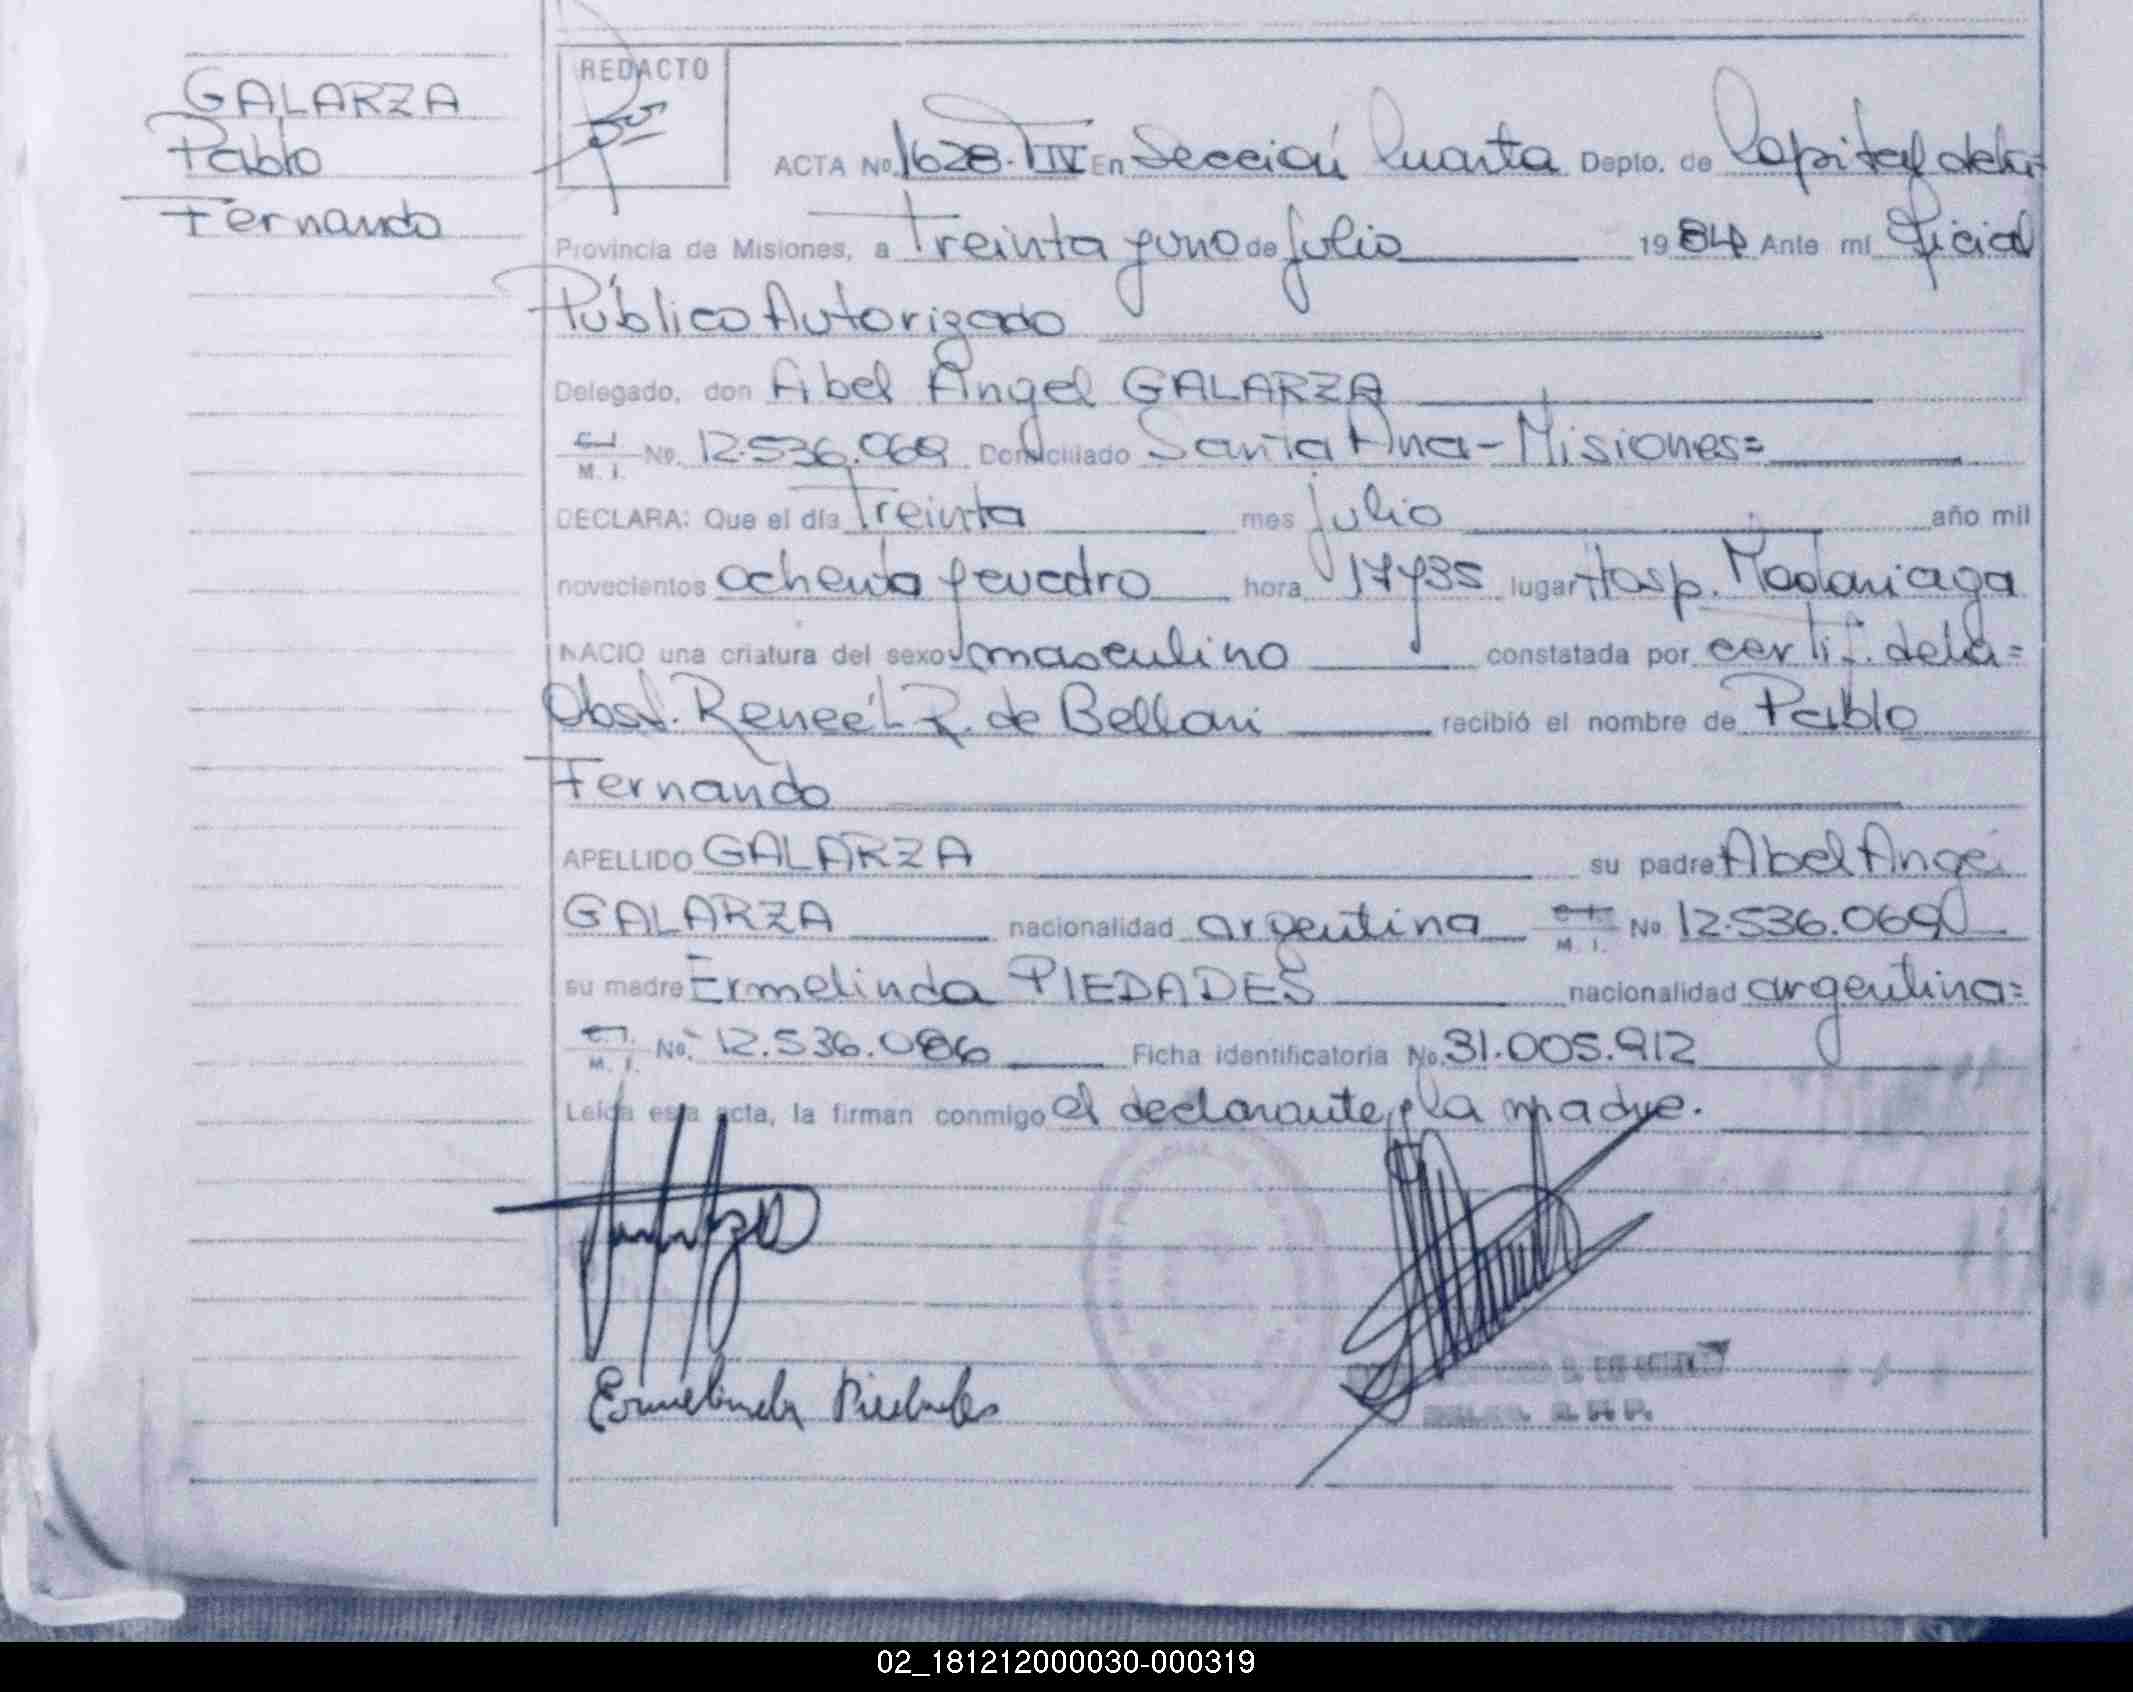 GALARZA
Pablo
Fernando
REDACTO
ACTA No. 1628-TIV En Sección Cuarta Depto. de Capital de la=
Provincia de Misiones, a Treinta y uno de julio 1984 Ante mí Oficial
Público Autorizado
Delegado, don Abel Angel GALARZA
C.I. M. I. No. 12.536.069 Domiciliado Santa Ana - Misiones=
DECLARA: Que el día Treinta mes julio año mil
novecientos ochenta y cuatro hora 17 y 35 lugar Hosp. Madariaga
NACIO una criatura del sexo masculino constatada por certif. de la=
Obst. Reneé L R. de Bellani recibió el nombre de Pablo
Fernando
APELLIDO GALARZA su padre Abel Angel
GALARZA nacionalidad argentina M. I. No 12.536.069
su madre Ermelinda PIEDADES nacionalidad argentina=
C.I. M. I. No. 12.536.086 Ficha identificatoria No. 31.005.912
Leída esta acta, la firman conmigo el declarante y la madre.
Ermelinda Piedades
02_181212000030-000319